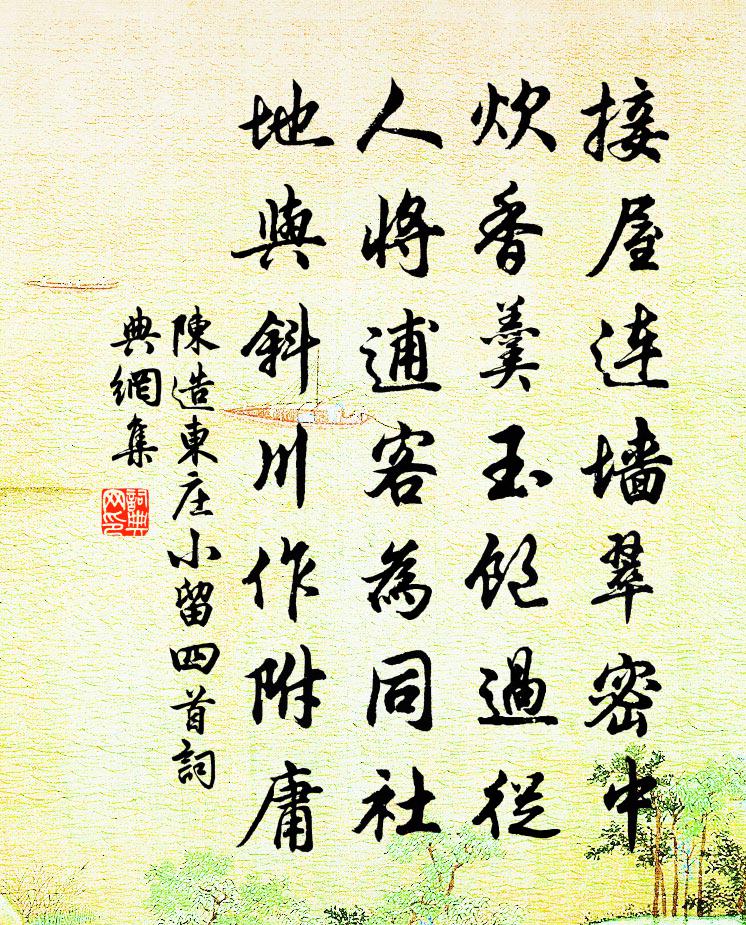 接屋连墙翠密中
炊香羹玉饱過從
人將逋客為同社
地與斜川作附庸
陳造東庄小留四首詞
典網集
詞典網印